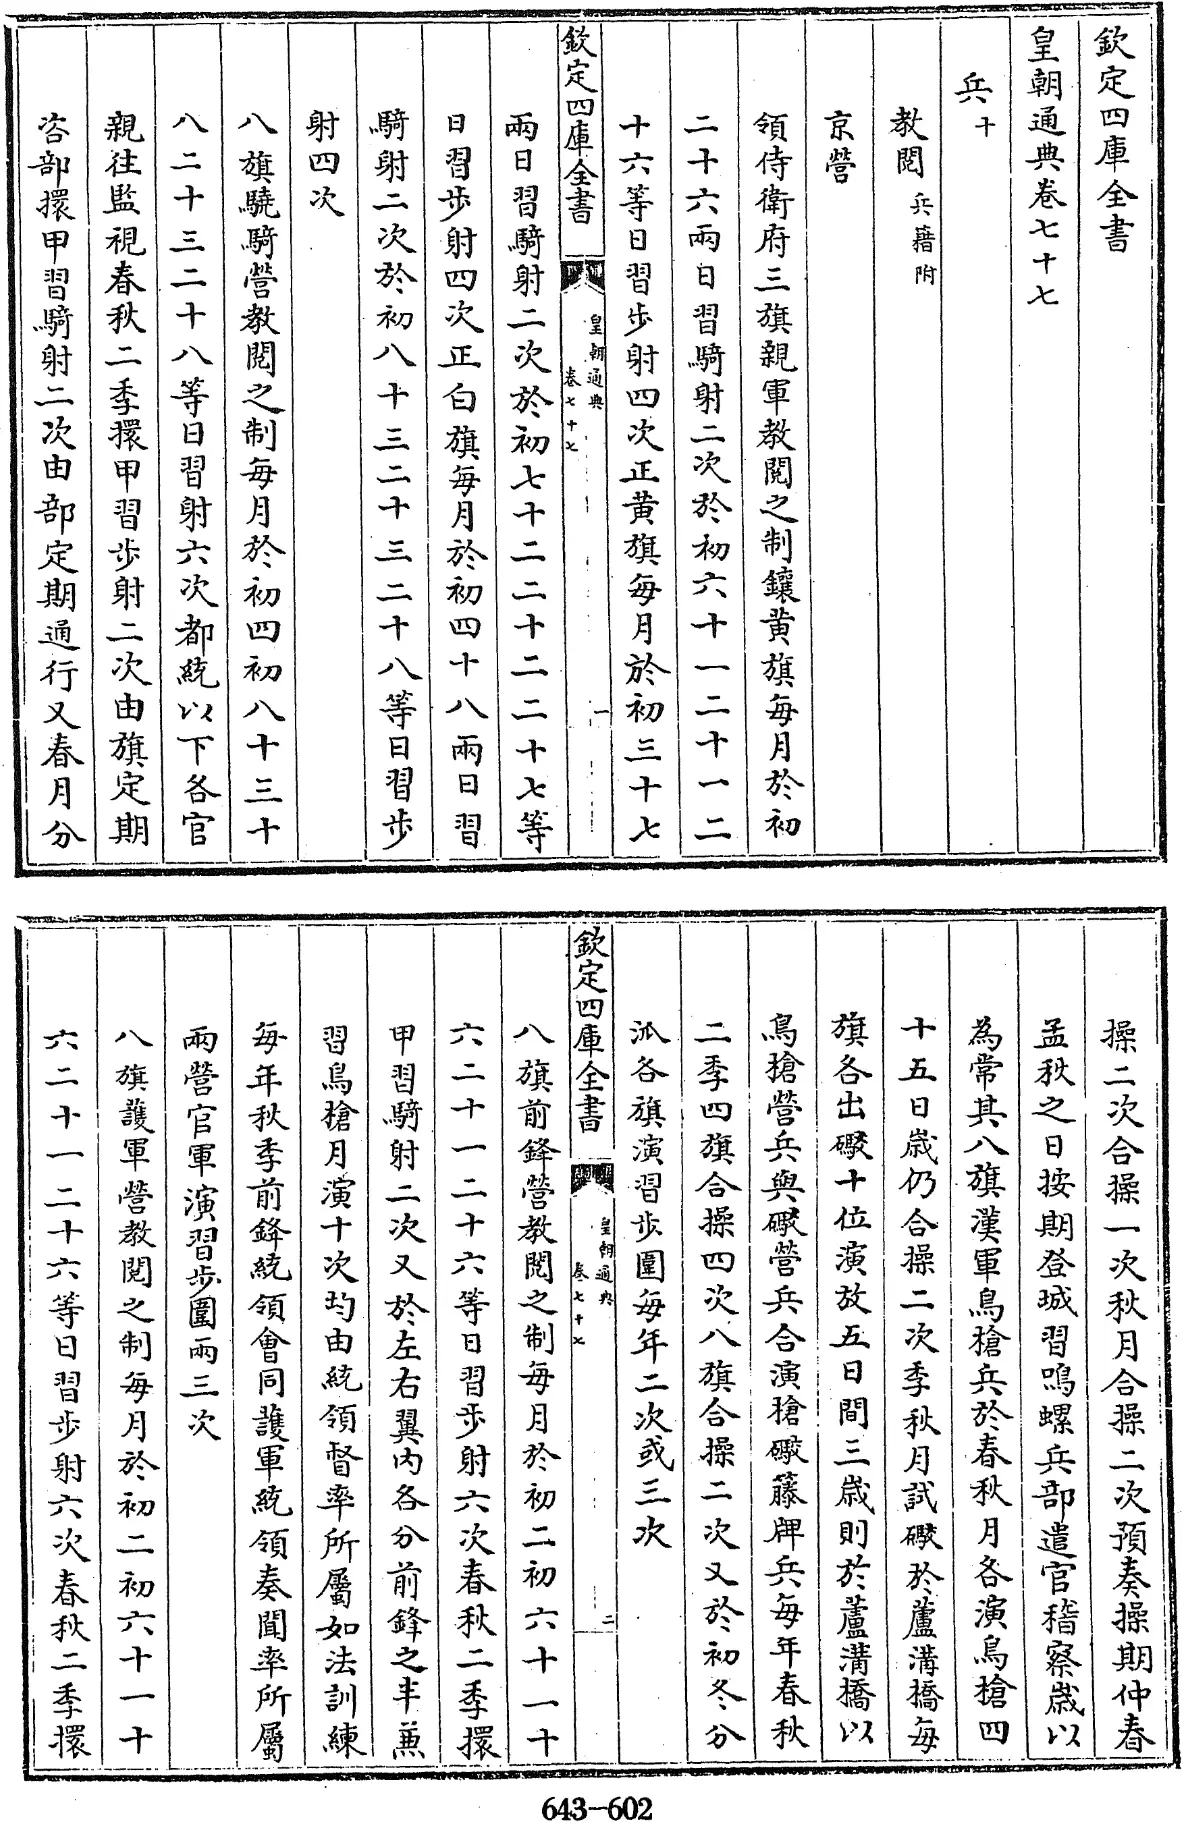 欽定四庫全書
皇朝通典卷七十七
兵十
教閲兵籍附
京營
領侍衛府三旗親軍教閲之制鑲黄旗每月於初
二十六兩日習騎射二次於初六十一二十一二
十六等日習步射四次正黄旗每月於初三十七
欽定四庫全書
皇朝通典
卷七十七
一
兩日習騎射二次於初七十二二十二二十七等
日習步射四次正白旗每月於初四十八兩日習
騎射二次於初八十三二十三二十八等日習步
射四次
八旗驍騎營教閲之制每月於初四初八十三十
八二十三二十八等日習射六次都統以下各官
親往監視春秋二季擐甲習步射二次由旗定期
咨部擐甲習騎射二次由部定期通行又春月分
操二次合操一次秋月合操二次預奏操期仲春
孟秋之日按期登城習鳴螺兵部遣官稽察歲以
為常其八旗漢軍鳥槍兵於春秋月各演鳥槍四
十五日歲仍合操二次季秋月試礮於蘆溝橋每
旗各出礮十位演放五日間三歲則於蘆溝橋以
鳥槍營兵與礮營兵合演槍礮籐牌兵每年春秋
二季四旗合操四次八旗合操二次又於初冬分
派各旗演習步圍每年二次或三次
欽定四庫全書
皇朝通典
卷七十七
二
八旗前鋒營教閲之制每月於初二初六十一十
六二十一二十六等日習步射六次春秋二季擐
甲習騎射二次又於左右翼内各分前鋒之半兼
習鳥槍月演十次均由統領督率所屬如法訓練
每年秋季前鋒統領會同護軍統領奏聞率所屬
兩營官軍演習步圍兩三次
八旗護軍營教閲之制每月於初二初六十一十
六二十一二十六等日習步射六次春秋二季擐
643-602